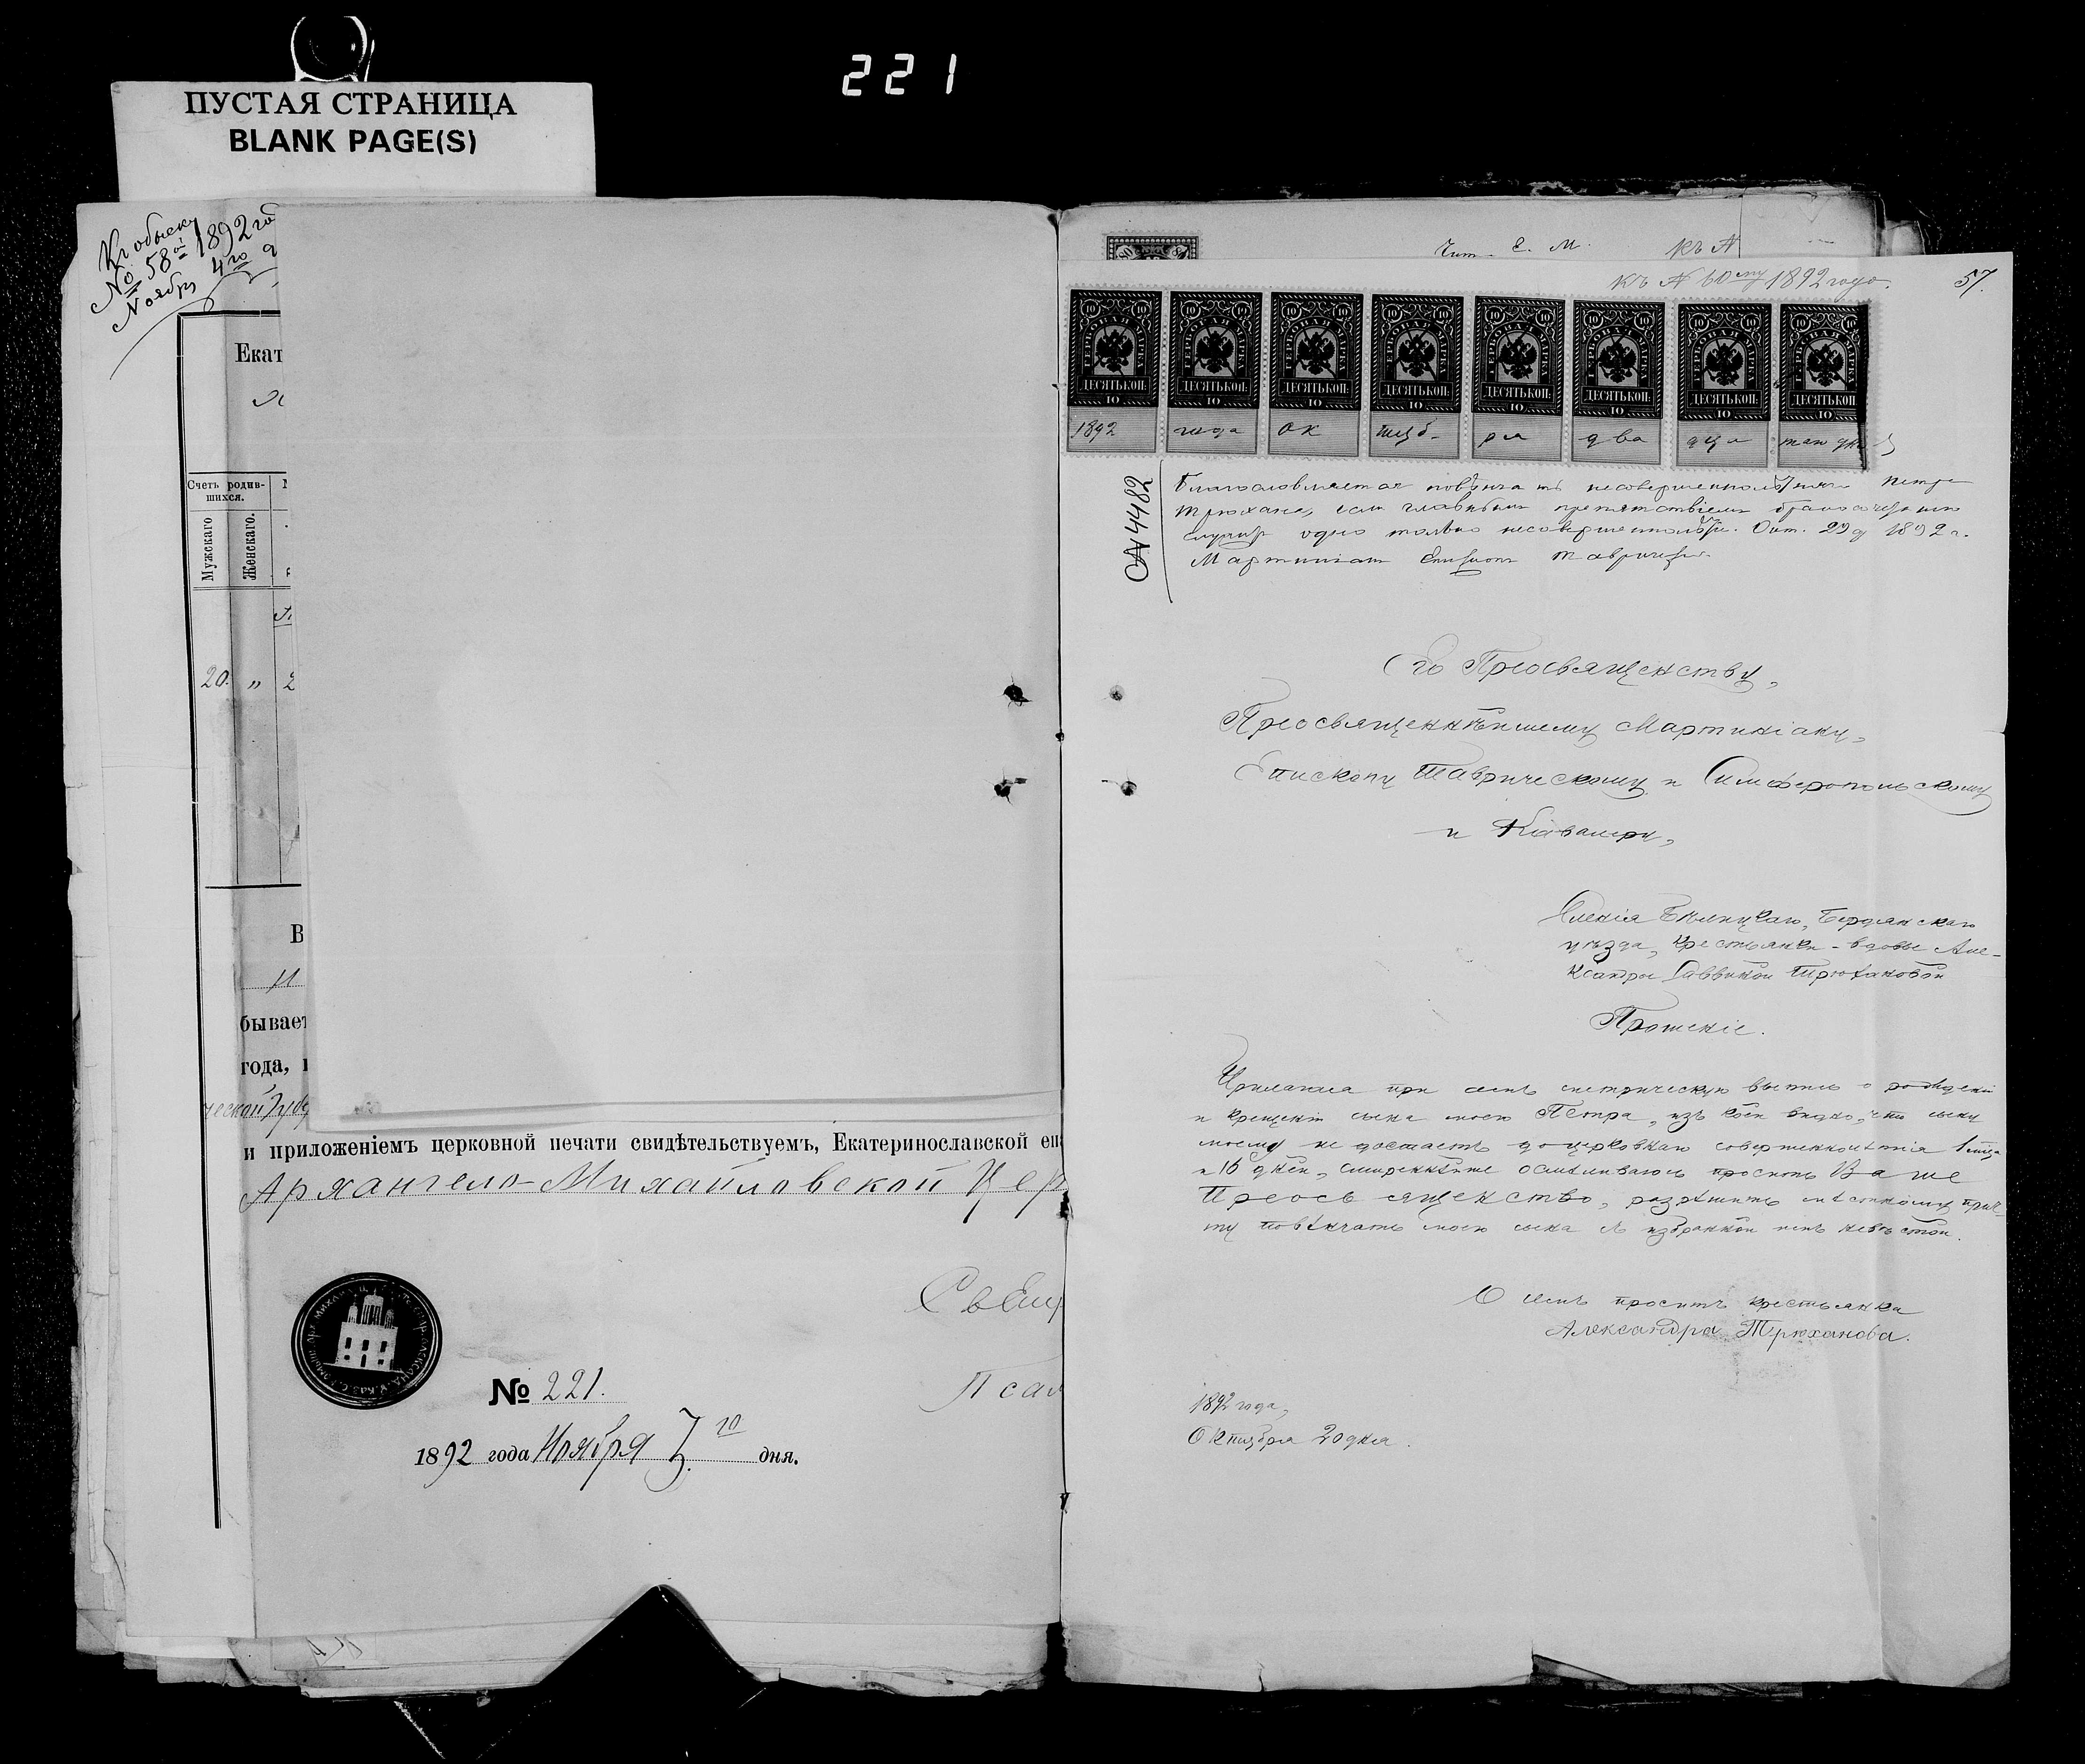 221
ПУСТАЯ СТРАНИЦА
BLANK PAGE(S)
Къ обыску
№ 58й 1892 го
Ноября 4го
Екат
Счетъ родив-
шихся.
Мужскаго
Женскаго.
20. „ 2
В
бывает
года,
ческой Губ
и приложеніемъ церковной печати свидѣтельствуемъ, Екатеринославской еп
Архангело-Михайловской Цер
Свящ
Псал
№ 221.
1892 года Ноября 3го дня.
Чит. Е. М. Къ №
Къ № 60му 1892 года. 57.
ДЕСЯТЬ КОП: ДЕСЯТЬ КОП: ДЕСЯТЬ КОП: ДЕСЯТЬ КОП: ДЕСЯТЬ КОП: ДЕСЯТЬ КОП: ДЕСЯТЬ КОП: ДЕСЯТЬ КОП:
10 10 10 10 10 10 10 10
1892 года ок тяб- ря два дца таго дня
№ 4482
Благословляется повѣнчать несовершеннолѣтняго Петра
Трюхана, если главнымъ препятствіемъ бракосочетанію
служитъ одно только несовершеннолѣтіе. Окт. 29 д 1892 г.
Мартиніанъ Епископъ Таврическій
Его Преосвященству,
Преосвященнѣйшему Мартиніану,
Епископу Таврическому и Симферопольскому
и Кавалеру,
уѣзда, крестьянки-вдовы Але-
ксандры Саввиной Трюхановой
Прошеніе.
Прилагая при семъ метрическую выпись о рожденіи
и крещеніи сына моего Петра, изъ коей видно, что сыну
моему не достаетъ до церковнаго совершеннолѣтія 1 мѣсяца
и 16 дней, смиреннѣйше осмѣливаюсь просить Ваше
Преосвященство, разрѣшить мѣстному прич-
ту повѣнчать моего сына съ избранной имъ невѣстой.
О семъ проситъ крестьянка
Александра Трюханова.
1892 года,
Октября 20 дня.